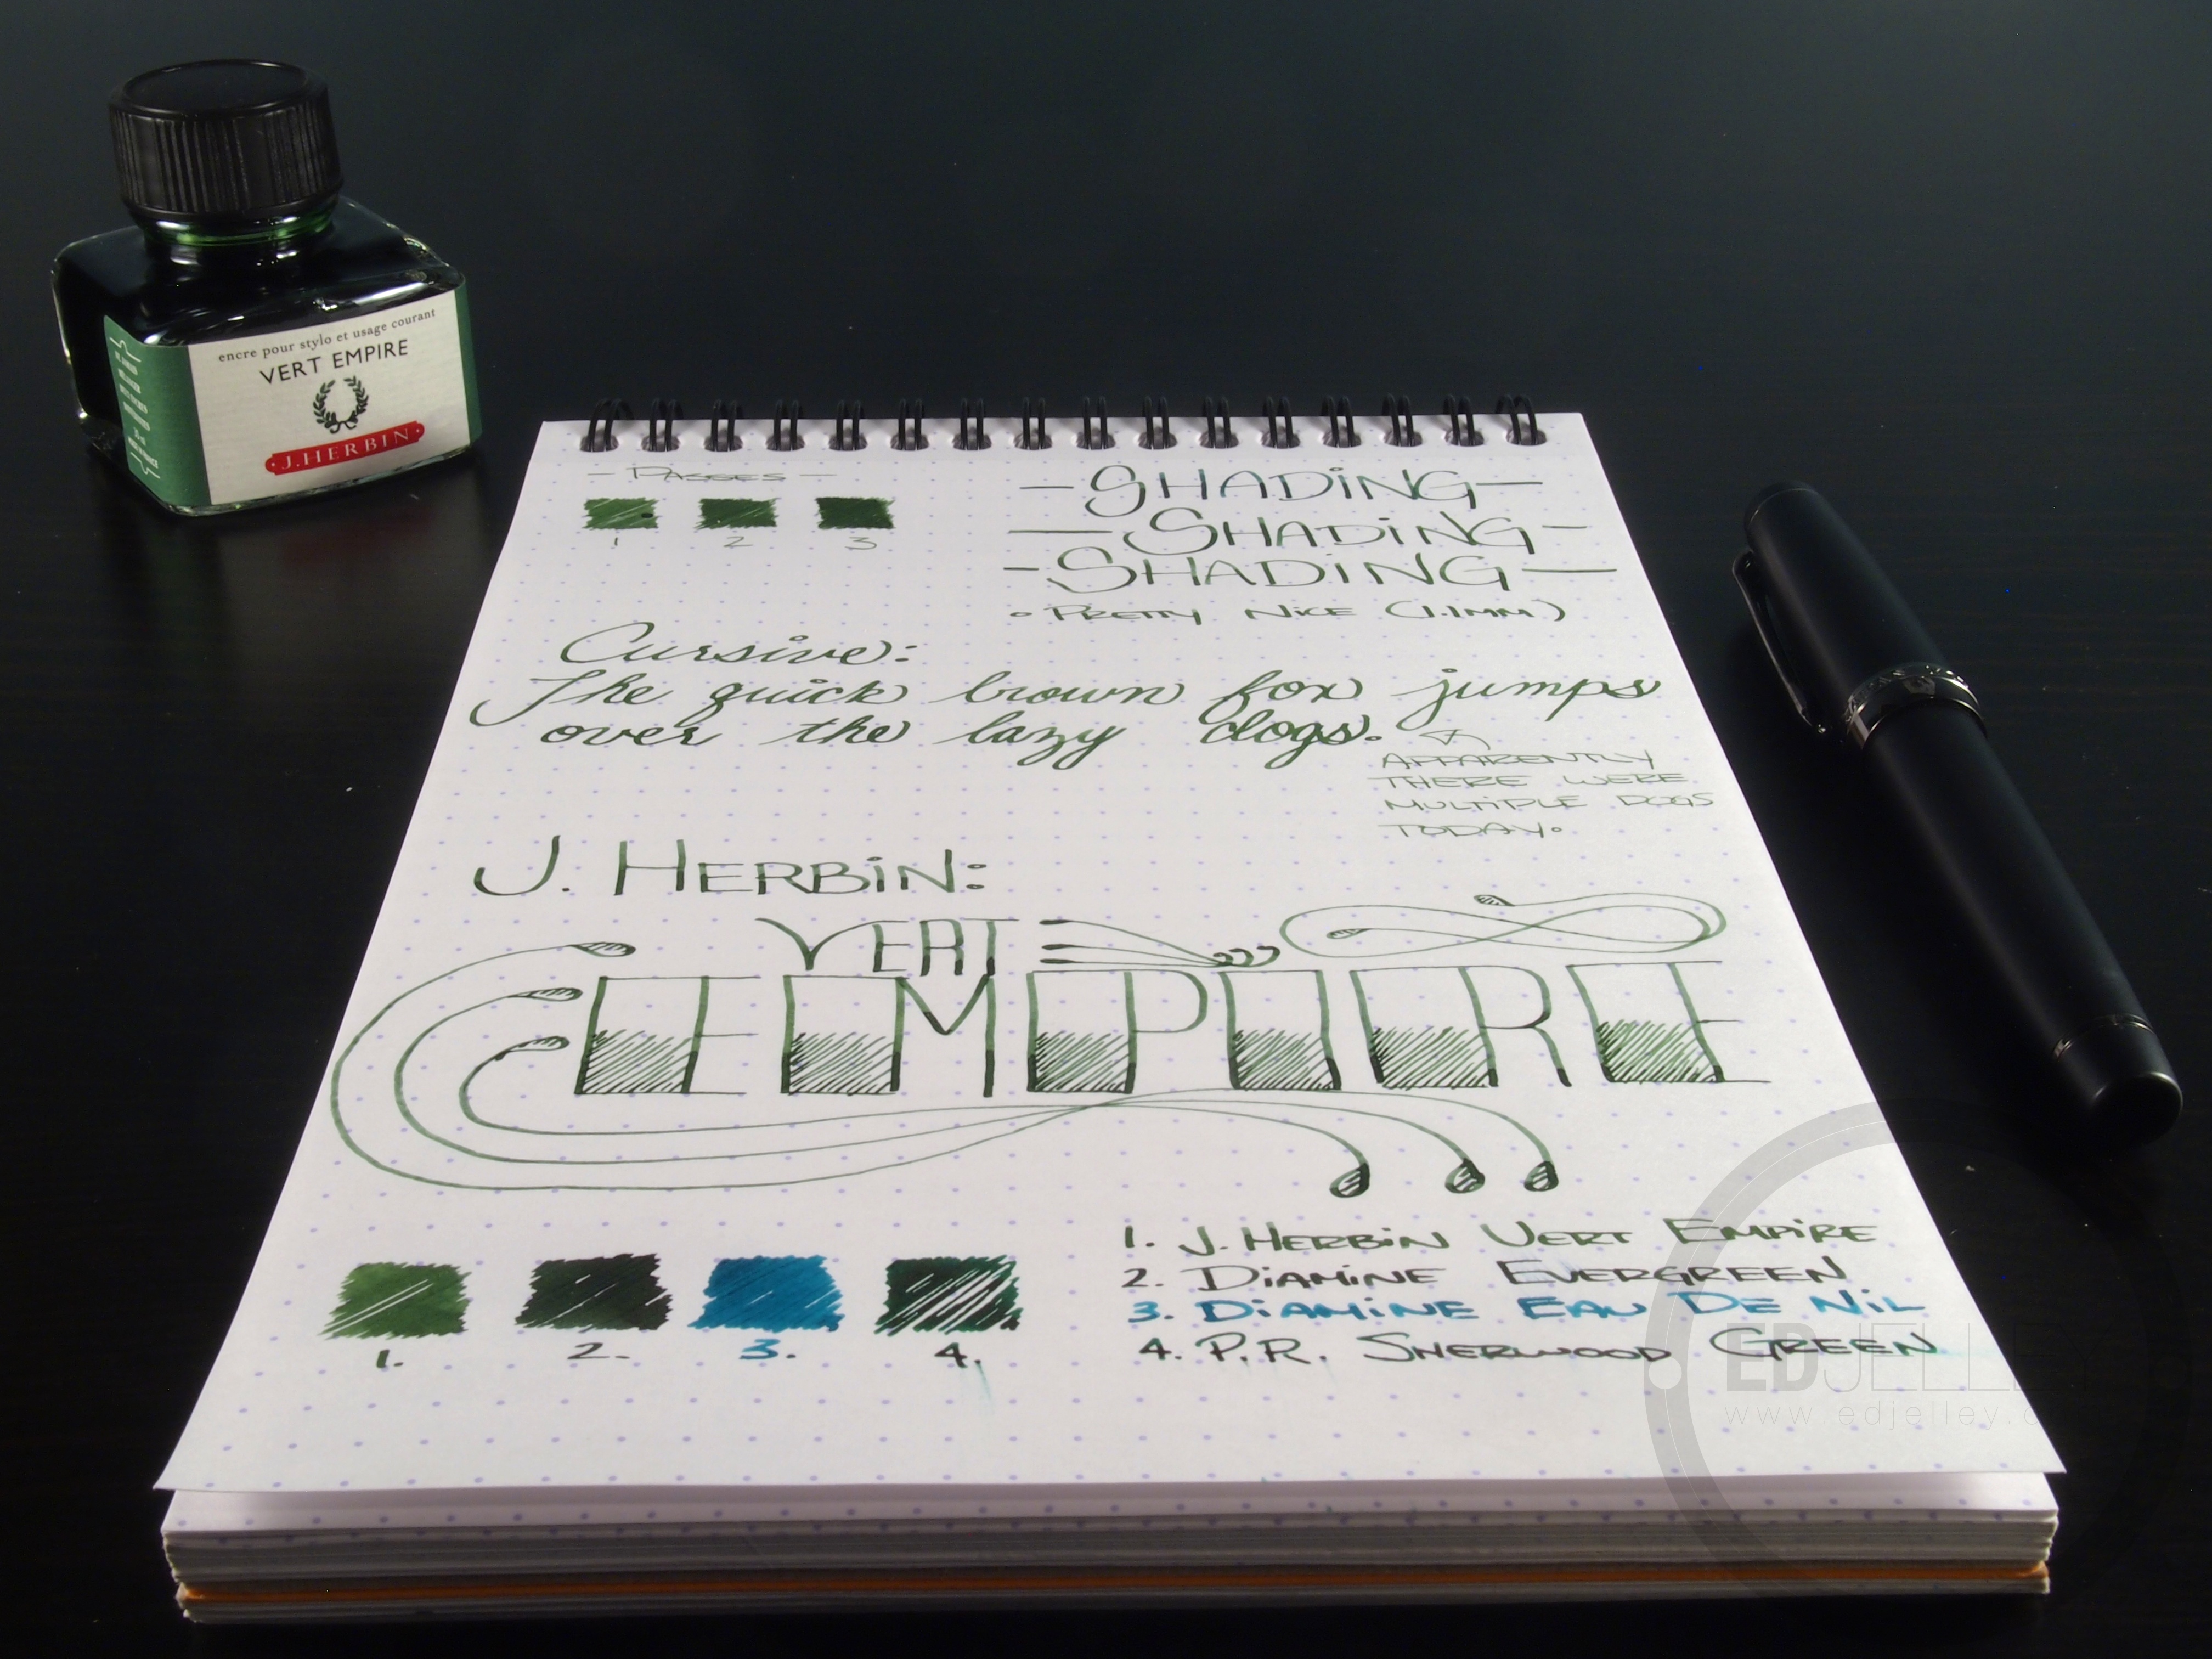 encre pour stylo et usage courant
VERT EMPIRE
J. HERBIN
- PASSES -
1 2 3
- SHADING -
- SHADING -
- SHADING -
• PRETTY NICE (1.1MM)
Cursive:
The quick brown fox jumps
over the lazy dogs.
APPARENTLY
THERE WERE
MULTIPLE DOGS
TODAY.
J. HERBIN:
VERT
EMPIRE
1. 2. 3. 4.
1. J. HERBIN VERT EMPIRE
2. DIAMINE EVERGREEN
3. DIAMINE EAU DE NIL
4. P.R. SHERWOOD GREEN
EDJELLEY
www.edjelley.c